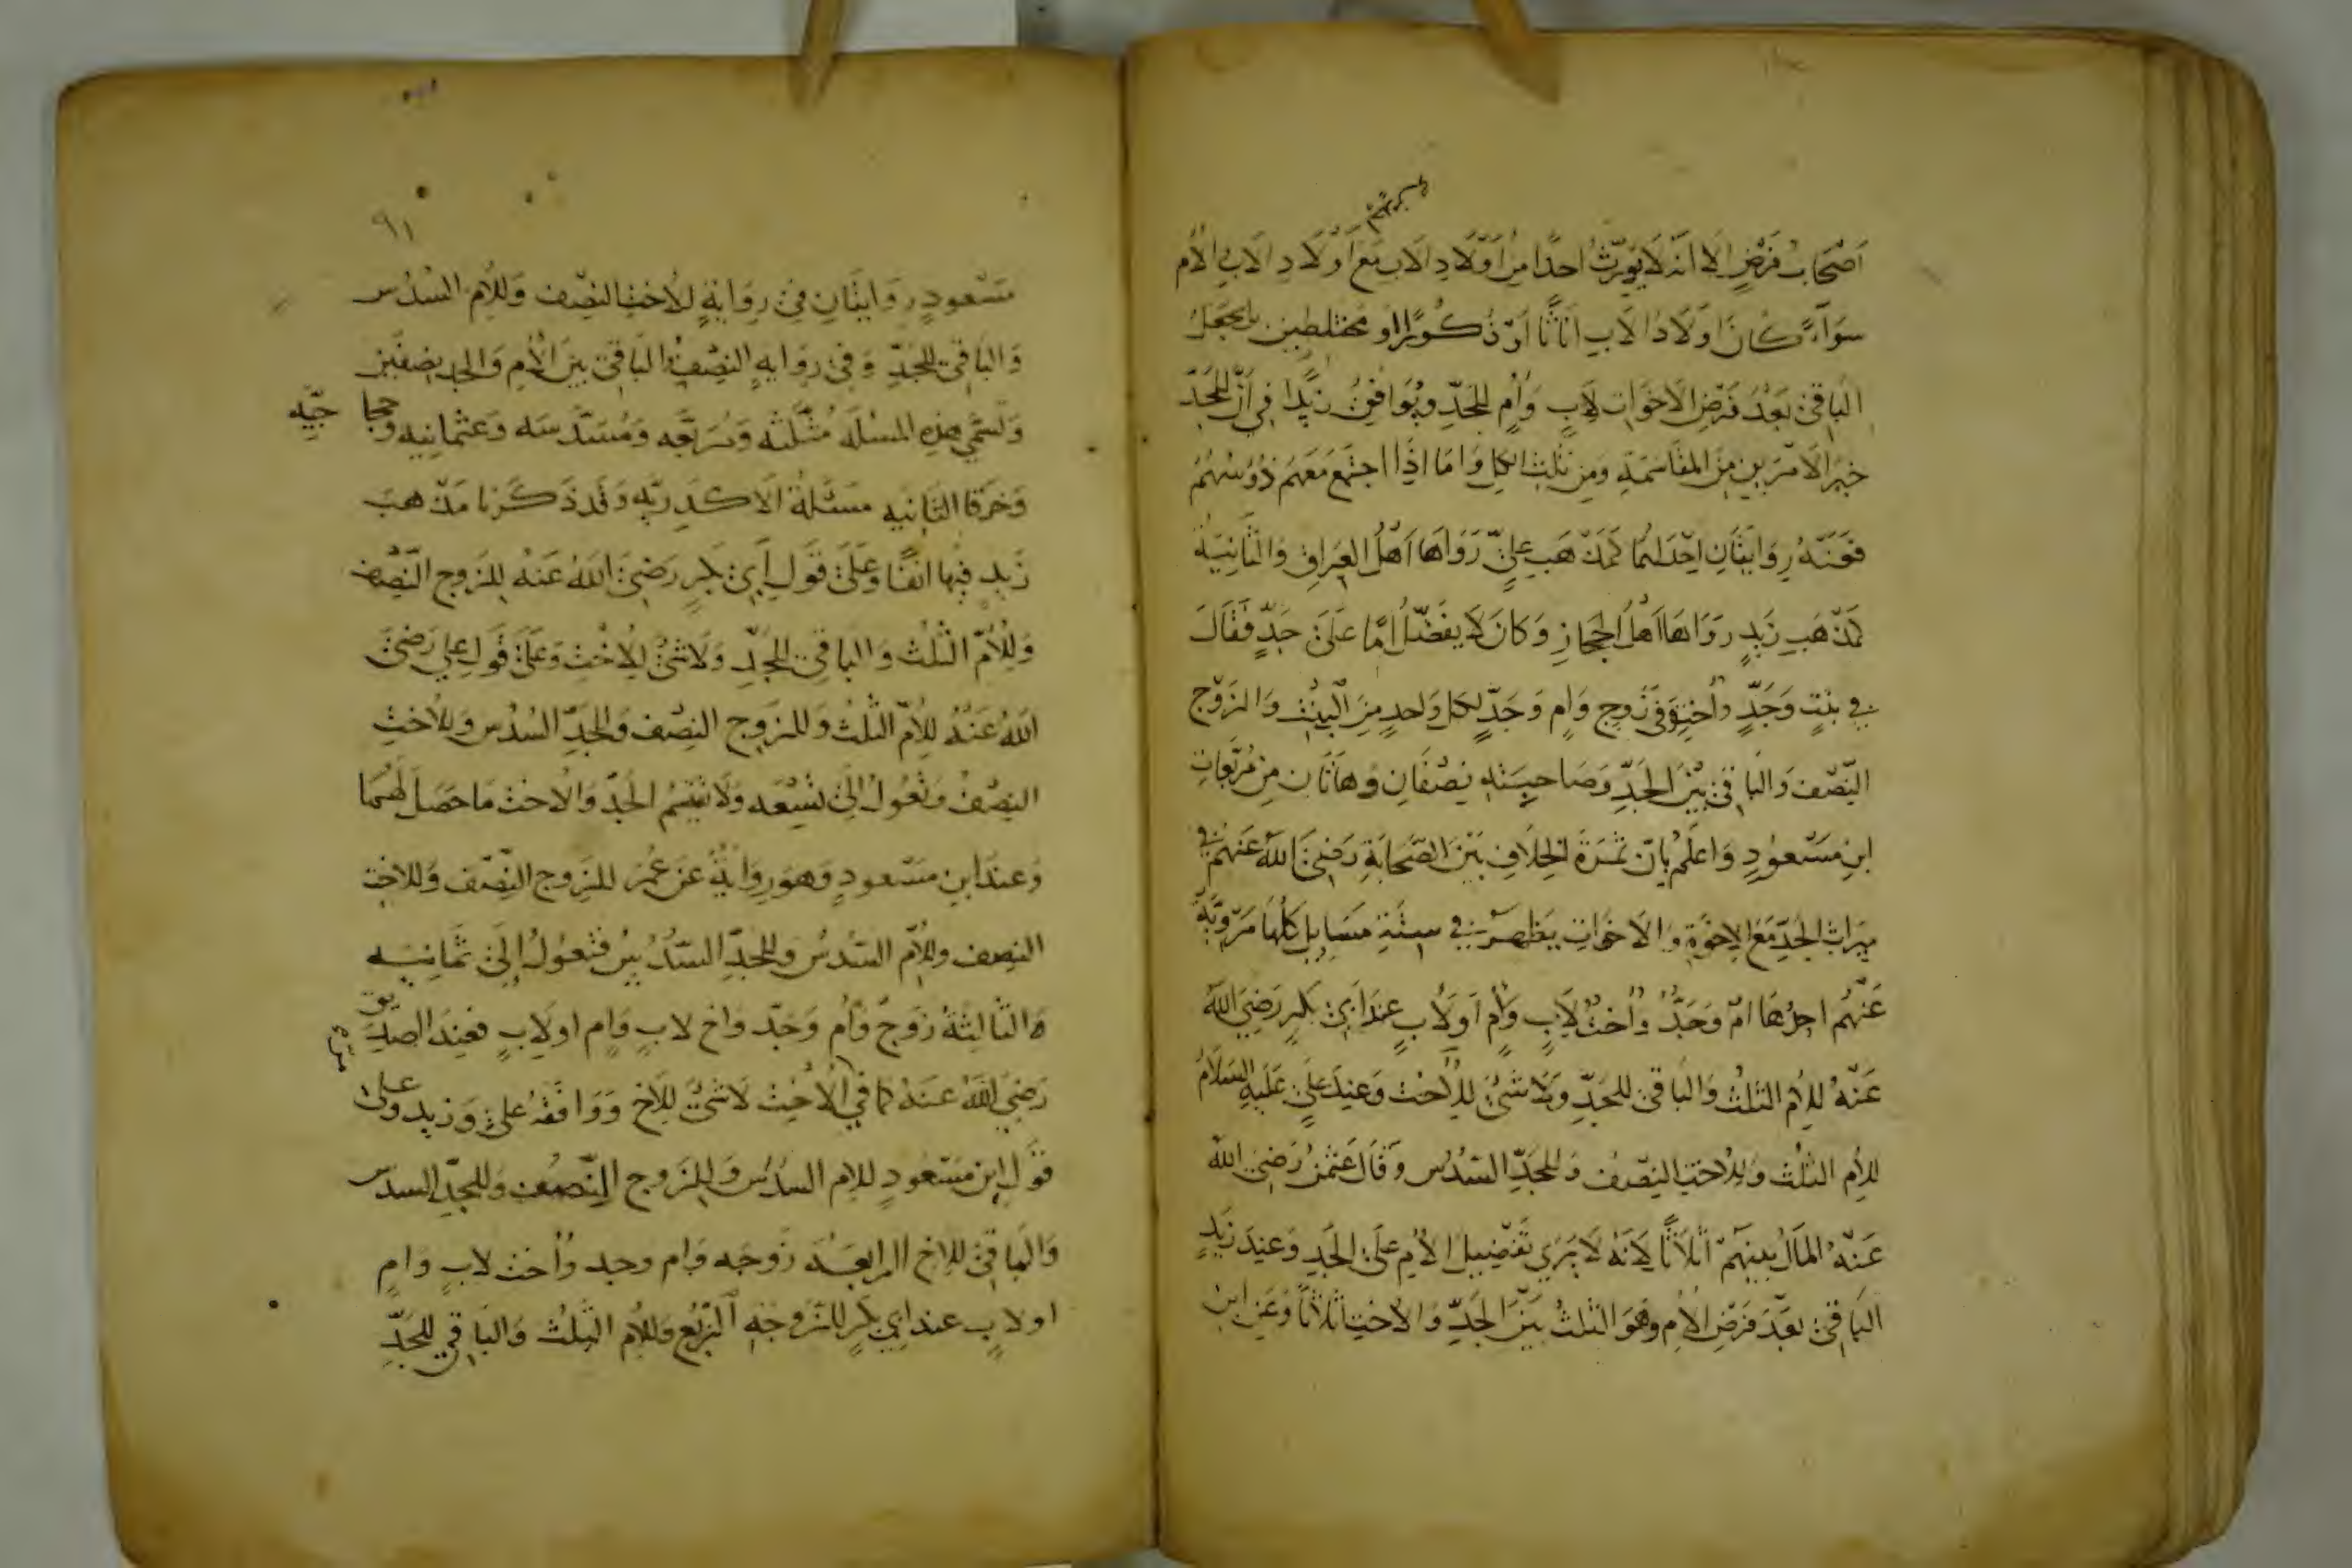 اَصْحَابُ فَرْضٍ اِلَا انَّهُ لَا يُوَرِّثُ احَدًا مِنْ اَوْلَادِ الَابِ مَعَ اَوْلَادِ الَابِ وَالاُم
سَوَآءً كَانَ اوَلَادُ الَابِ اناثًا اَوْ ذُكُورًا او مختلطين بل يجعَلُ
الْبَاقِىْ بَعْدَ فَرْضِ الَاخَوَاتِ لِاَبٍ وَاُمٍ لِلجَدِّ وَيُوَافِقُ زَيْدًا فِي اَنَّ لِلجَدِّ
خيرَ الاَمْرَيْنِ مِنَ المقَاسَمَةِ وَمِن ثُلُثِ الكل وَامَا اِذَا اجتمَعَ مَعَهُم ذُوسَهْم
فعَنْهُ رِوَايتَانِ اِحْدَاهُما كَمَذْهَبِ عليٍّ رَوَاهَا اَهْلُ العِرَاقِ وَالثانِيَة
كمَذْهَبِ زَيدٍ رَوَاهَا اهْلُ الحِجَازِ وَكانَ لَا يفَضِّلُ اُمًّا عَلَىْ جَدٍّ فَقَالَ
في بنْتٍ وَجَدٍّ وَاُختٍ وَفى زَوجٍ وَامٍ وَجَدٍّ لِكلِ وَاحِدٍ مِنَ الْبِنْتِ وَالزَوْج
النِّصْف وَالبَاقىْ بَيْنَ الجَدِّ وَصَاحِبَتِهِ نِصْفَانِ وَهَاتَانِ مِن مُرَبَّعَاتِ
ابنِ مسْعُودٍ وَاعلَمْ بِانّ ثَمَرَةَ الخِلَافِ بَيْنَ الصَّحَابَةِ رَضِيَ اللهُ عَنهُم في
ميرَاث الجَدِّ مَعَ الِاخوَةِ وَالاَخَوَاتِ يَظهَرُ في ستَّةِ مسَايل كلُّهَا مَرْوِيَّةٌ
عَنْهُم احدُهَا امٌّ وَجَدٌّ وَاُختٌ لِاَبٍ وَاُمٍ اَو لِاَبٍ عنْدَ اَبىْ بَكرٍ رَضِيَ اللهُ
عَنْهُ لِلْاُمِ الثلُثُ وَالبَاقىْ لِلجَدِّ وَلَا شَىْءَ لِلْاُخْت وَعِندَ عَلِيٍّ عَلَيهِ السَلَامُ
للاُمِ الثلُثُ وَلِلْاختِ النِصْفُ وَلِلجَدِّ السّدُسُ وَقَالَ عثمنُ رَضِيَ اللهُ
عَنْهُ المَالُ بينَهُمْ اثلَاثًا لِاَنَهُ لَا يَرَي تَفْضِيلَ الاُمِ عَلَىْ الجَدِ وَعِندَ زَيدٍ
البَاقىْ بعْدَ فَرْضِ الاُمِ وَهُوَ الثلثُ بَيْنَ الجَدِّ وَالاُختِ اثلَاثًا وَعَنِ ابنِ
٩١
مَسْعودٍ رِوَايتَانِ فىْ رِوَايَةٍ للْاُختِ النِصْف وَلِلْاُم السُدُسُ
وَالبَاقىْ لِلجَدِّ وَفىْ رِوَايهٍ النِصْفُ وَالبَاقىْ بيْنَ الاُمِ وَالجد نِصْفَيْنِ
وَتسَمّى هذهِ المسْئلَة مُثَلَّثَه وَمُرَبَّعَه وَمُسَدَّسَه وَعثمَانيه وحجا جيّه
وَخَرقا الثَانِيه مَسْئَلَةُ الاَكدَرِيّهِ وَقَدْ ذَكَرْنا مَذْهبَ
زَيدٍ فيها انفًا وَعَلَىْ قَولِ اَبىْ بَكرٍ رَضىَ اللهُ عَنهُ للزَوجِ النّصْف
وَلِلْاُمّ الثُلُث وَالبَاقىْ للجَدِّ وَلَا شَىْءَ لِلْاُخْت وَعَلىْ قَول علي رَضىَ
اللهُ عَنْهُ لِلْاُمّ الثلُثُ وَللزَوج النِصْف وَللجَدِّ السُدُس وَلِلاُختِ
النِصْفُ وَتعُولُ اِلىْ تسْعَه وَلَا يقسمُ الجَدّ وَالاُخت مَا حصَلَ لَهُمَا
وَعندَ ابنِ مسْعودٍ وَهوَ رِوَايَةٌ عَن عُمَر للزَوج النِّصْف وَللاختِ
النِصف وللاُمّ السّدُسُ وَللجَدِّ السّدُسُ فتعُولُ اِلىْ ثَمانيَه
الثالِثَةُ زَوجٌ وَاُم وَجَدّ وَاخ لابٍ وَامٍ او لِابٍ فعِندَ الصِديق
رَضيَ اللهُ عَنهُ كما في الاُختِ لَا شَىْءَ لِلاَخِ وَوَافَقَهُ عَلىٌّ وَزيد وَعلى
قَولِ ابنِ مَسْعُودٍ للام السدُس وَلِلزَوج النّصف وَللجَدِّ السدس
وَالبَاقىْ لِلاخِ الرابعَة زَوجَه وَام وجد وَاُخت لابٍ وَامٍ
او لابٍ عند ابي بَكرٍ للزَوجَةِ الرّبُع وَللاُمِ الثلُث وَالبَاقي للجَدِّ